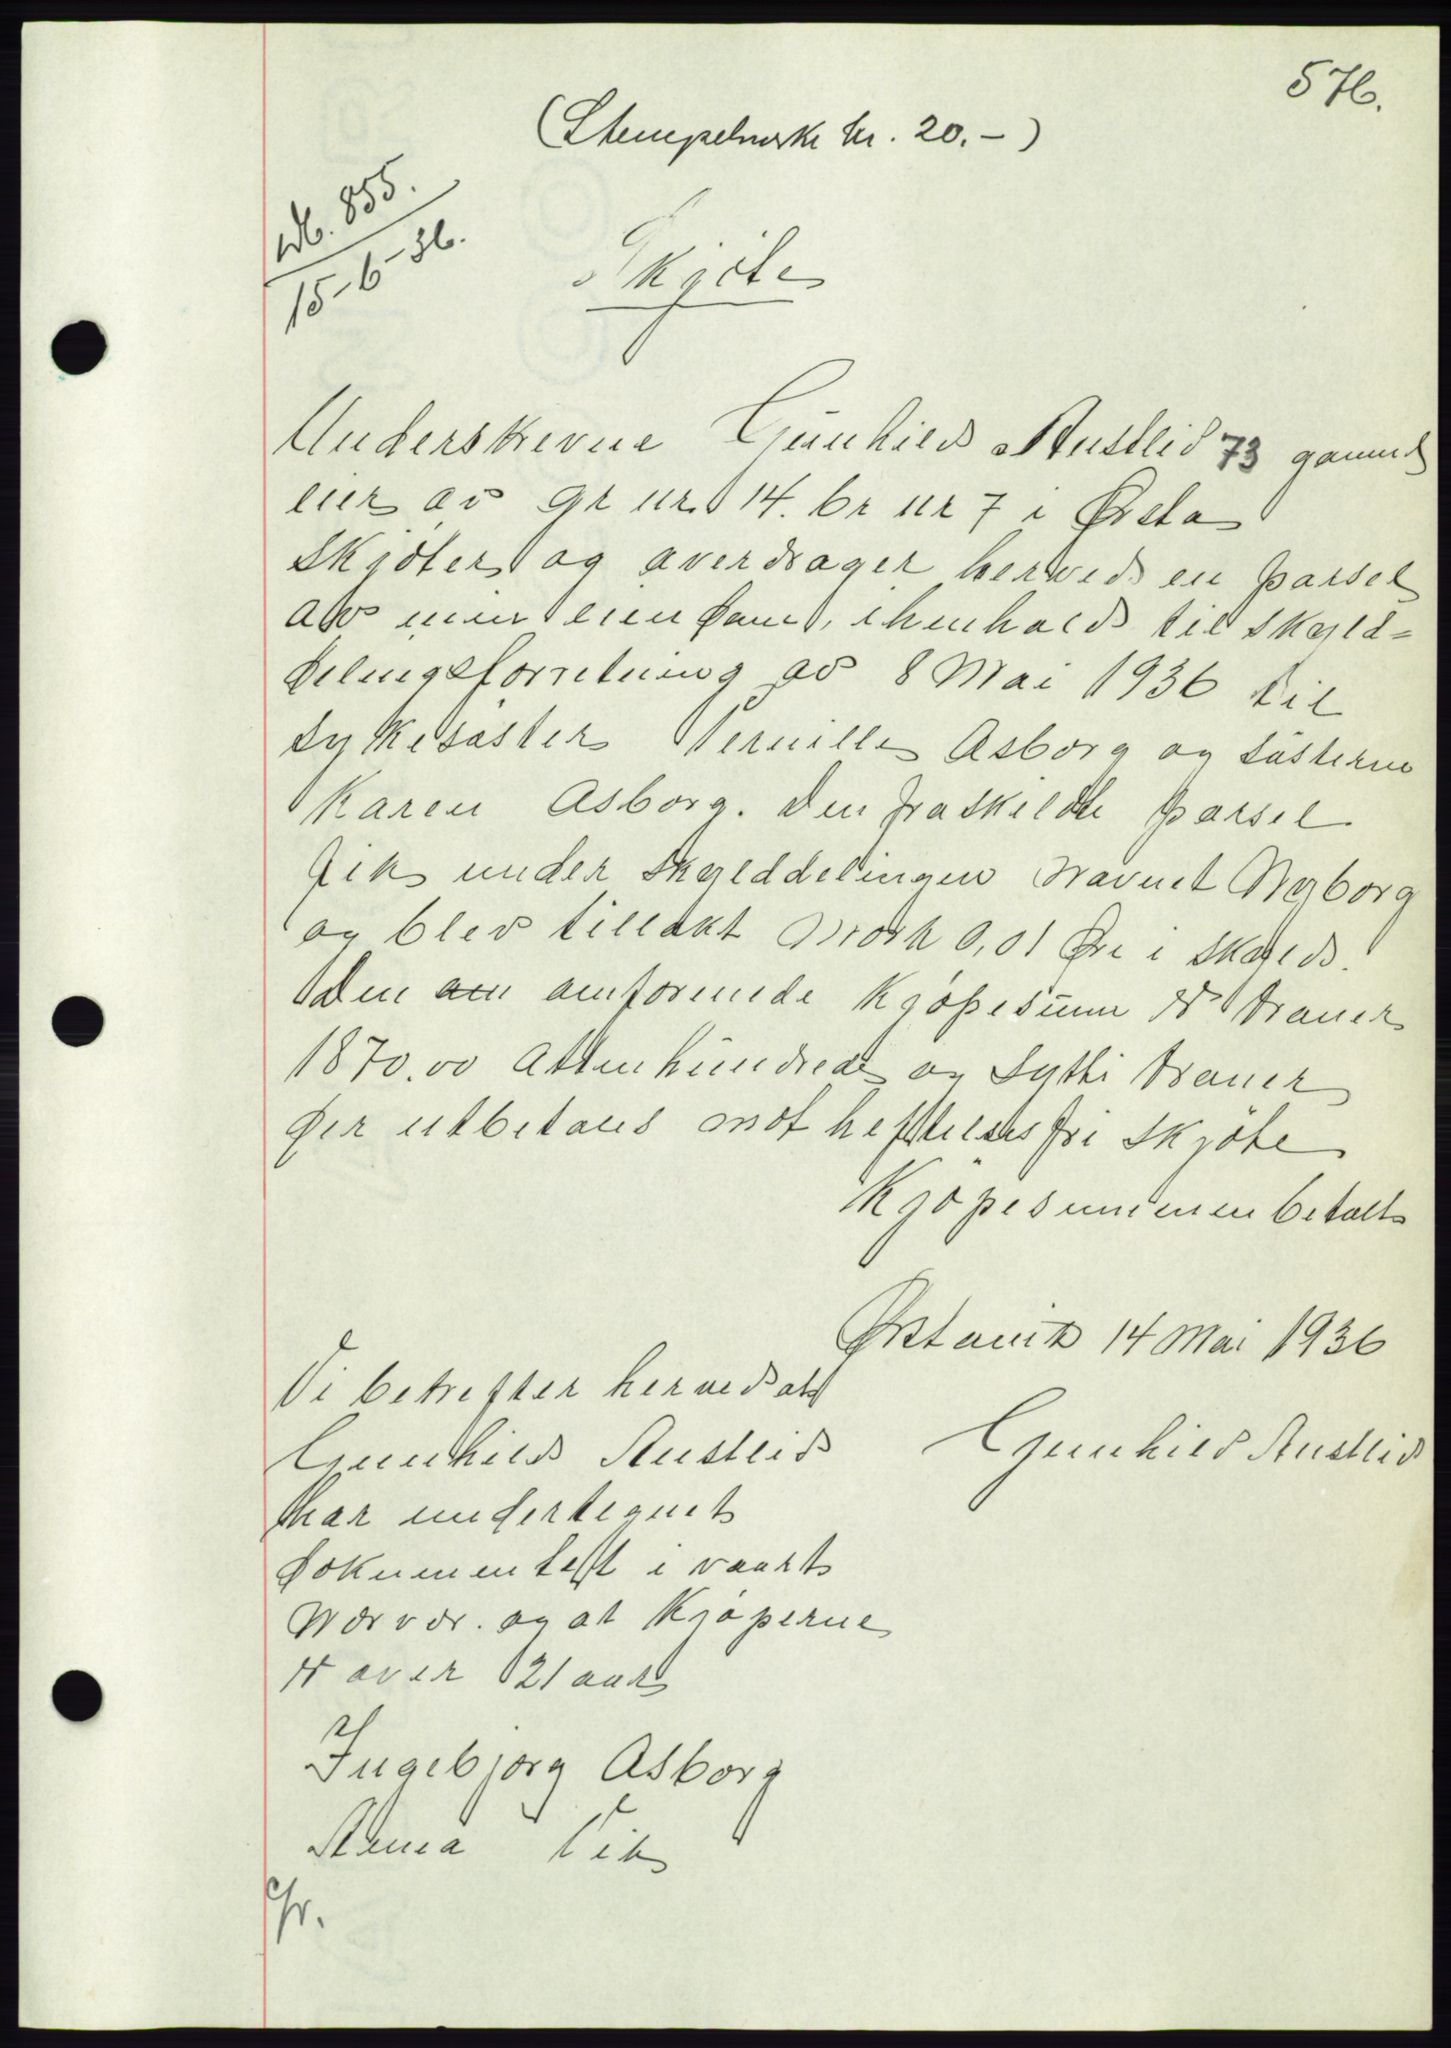 576.
(Stempelmerke kr. 20.-)
db. 855.
15-6-36.
Skjöte
Underskrevne Gunhild Austlid 73 gammel
eier av gr nr 14. br nr 7 i Ørsta
Skjöter og averdrager herved en parsel
av min eiendom, ihenhold til skyld=
delingsforretning av 8 Mai 1936 til
sykesöster Pernille Asborg og söstern
Karen Asborg. Den fraskildte parsel
fik under skylddelingen navnet Nyborg
og blev tillakt mark 0,01 Øre i skyld.
Den omforenede Kjöpesum er kroner
1870.00 Attenhundrede og sytti kroner
der utbetales mot heftelsesfri skjöte
Kjöpesummen betalt
Ørstavik 14 Mai 1936
Vi betrefter herved at
Gunhild Austlid
Gunhild Austlid
har undertegnet
dokumentet i vaart
nærvær. og at Kjöperne
er over 21 aar
Ingebjorg Asborg
Anna Vik